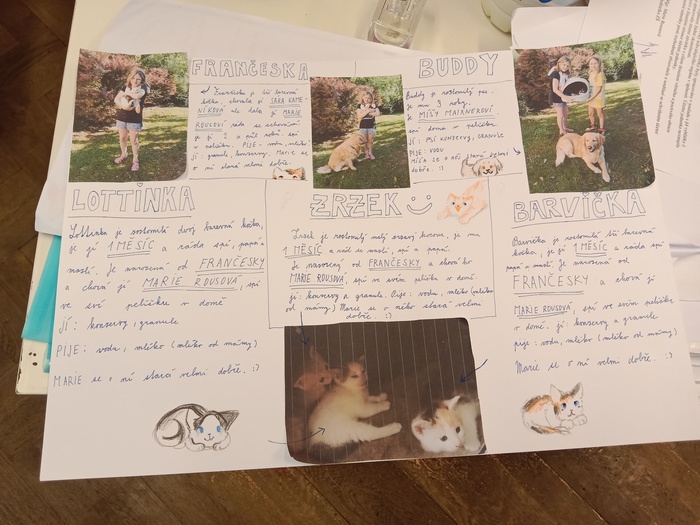 FRANČESKA
Frančeska je tří barevná
kočka, chovala ji SARA KAME-
NÍKOVÁ ale dala ji MARII
ROUSOVÉ, ráda se schovává
je jí 2 a půl roku. spí
v pelíšku. PIJE - vodu, mléko,
jí: granule, konzervy, Marie se
o ní stará velmi
dobře.
BUDDY
Buddy je roztomilý pes.
je mu 3 roky.
je MÍŠI MAIANEROVÍ
spí doma v pelíšku
JÍ: PSÍ KONZERVY, GRANULE
PIJE: VODU
MÍŠA SE O NĚJ stará velmi
dobře. :)
LOTTINKA
Lottinka je roztomilá dvoj barevná kočka,
je jí 1 MĚSÍC a ráda spí, papá a
mazlí. Je narozená od FRANČESKY
a chová jí MARIE ROUSOVÁ, spí
ve své pelíšku v domě
JÍ: konzervy, granule
PIJE: vodu, mléko (mléko od mámy)
MARIE se o ní stará velmi dobře. :)
ZRZEK
Zrzek je roztomilý malý zrzavý kocour, je mu
1 MĚSÍC a rád se mazlí, spí a papá.
Je narozený od FRANČESKY a chová ho
MARIE ROUSOVÁ, spí ve svém pelíšku v domě
jí: konzervy a granule. Pije: vodu, mléko (mléko
od mámy) Marie se o něho stará velmi
dobře. :)
BARVIČKA
Barvička je roztomilá tří barevná
kočka, je jí 1 MĚSÍC a ráda spí
papá a mazlí. Je narozená od
FRANČESKY a chová jí
MARIE ROUSOVÁ, spí ve svém pelíšku
v domě. jí: konzervy a granule
pije: vodu, mléko (mléko od mámy)
Marie se o ní stará velmi dobře. :)